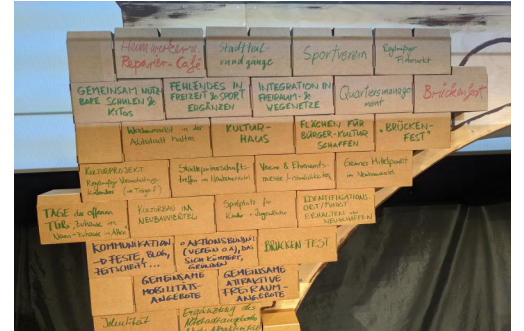 Heimwerker u.
Reparier-Café
Stadtteil-
rundgänge
Sportverein
Regelmäßiger
Flohmarkt
GEMEINSAM NUTZ
BARE SCHULEN &
KITAS
FEHLENDES IN
FREIZEIT & SPORT
ERGÄNZEN
INTEGRATION IN
FREIRAUM- &
WEGENETZE
Quartiersmanage
ment
Brückenfest
Wochenmarkt in der
Altstadt halten
KULTUR-
HAUS
FLÄCHEN FÜR
BÜRGER-KULTUR
SCHAFFEN
"BRÜCKEN-
FEST"
KULTURPROJEKT
Regelmäßige
Städtepartnerschaft-
treffen im
Vereine & Ehrenamt-
Grüner Mittelpunkt
im
TAGE der offenen
TÜR, Zuhause im
Neuen-Zuhause im Alten
KULTURBAU IM
NEUBAUVIERTEL
Spielplatz für
Kinder + Jugendliche
IDENTIFIKATIONS-
ORT/PUNKT
ERHALTEN
NEU SCHAFFEN
KOMMUNIKATION
FESTE, BLOG,
ZEITSCHRIFT...
AKTIONSBÜNDNIS
(VEREIN O.Ä.), DAS
SICH KÜMMERT,
GRÜNDEN
BRÜCKEN FEST
GEMEINSAME
MOBILITÄTS-
ANGEBOTE
GEMEINSAME
ATTRAKTIVE
FREIRAUM-
ANGEBOTE
Identität
Ergänzung des